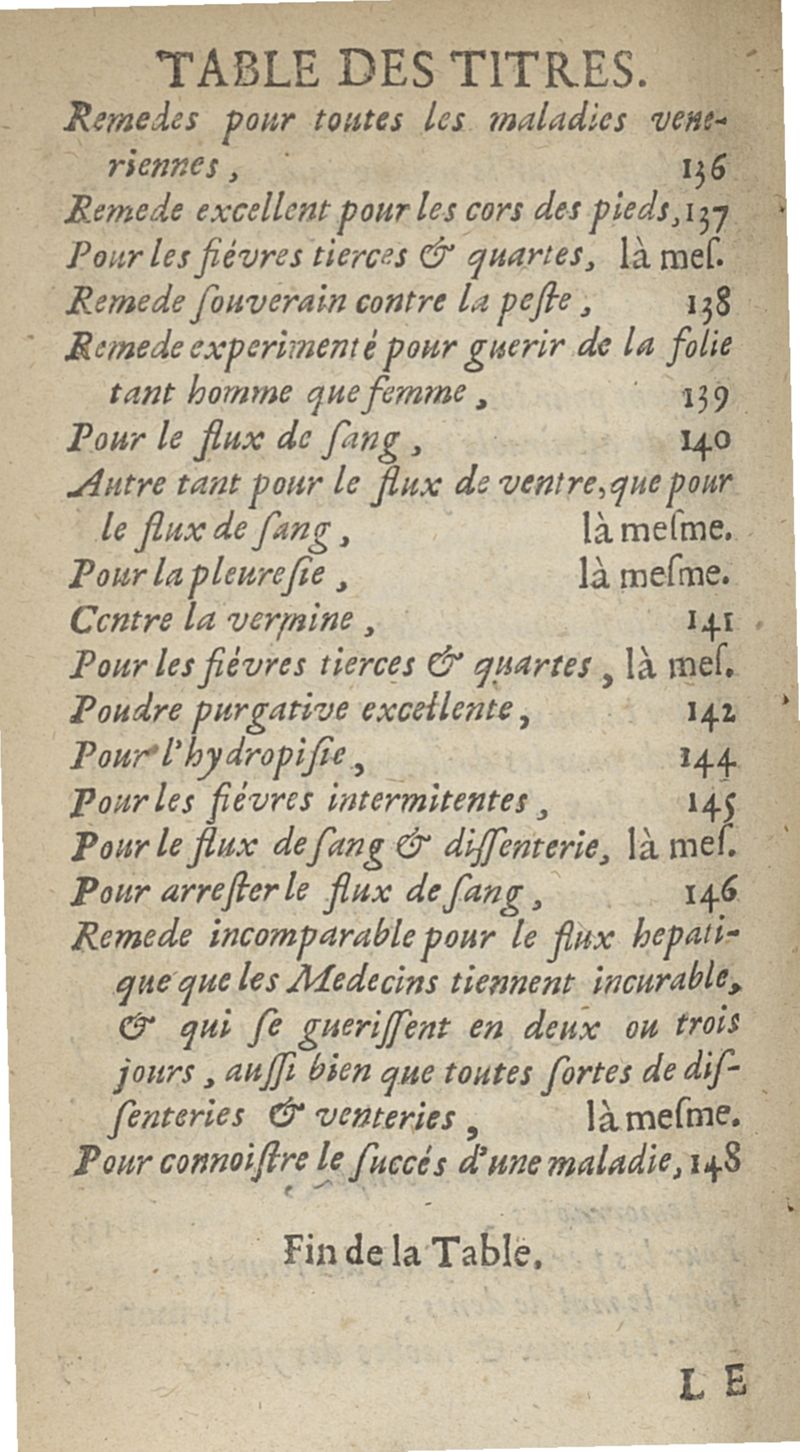 TABLE DES TITRES.
Remedes pour toutes les maladies vene-
riennes, 136
Remede excellent pour les cors des pieds, 137
Pour les fiévres tierces & quartes, là meſ.
Remede ſouverain contre la peſte, 138
Remede experimenté pour guerir de la folie
tant homme que femme, 139
Pour le flux de ſang, 140
Autre tant pour le flux de ventre, que pour
le flux de ſang, là meſme.
Pour la pleureſie, là meſme.
Contre la vermine, 141
Pour les fiévres tierces & quartes, là meſ.
Poudre purgative excellente, 142
Pour l'hydropiſie, 144
Pour les fiévres intermitentes, 145
Pour le flux de ſang & diſſenterie, là meſ.
Pour arreſter le flux de ſang, 146
Remede incomparable pour le flux hepati-
que que les Medecins tiennent incurable,
& qui ſe gueriſſent en deux ou trois
jours, auſſi bien que toutes ſortes de diſ-
ſenteries & venteries, là meſme.
Pour connoiſtre le ſuccés d'une maladie, 148
Fin de la Table.
LE